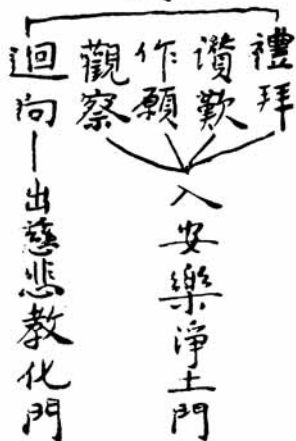 禮拜
讚歎
作願
觀察
迴向
入安樂淨土門
出慈悲教化門